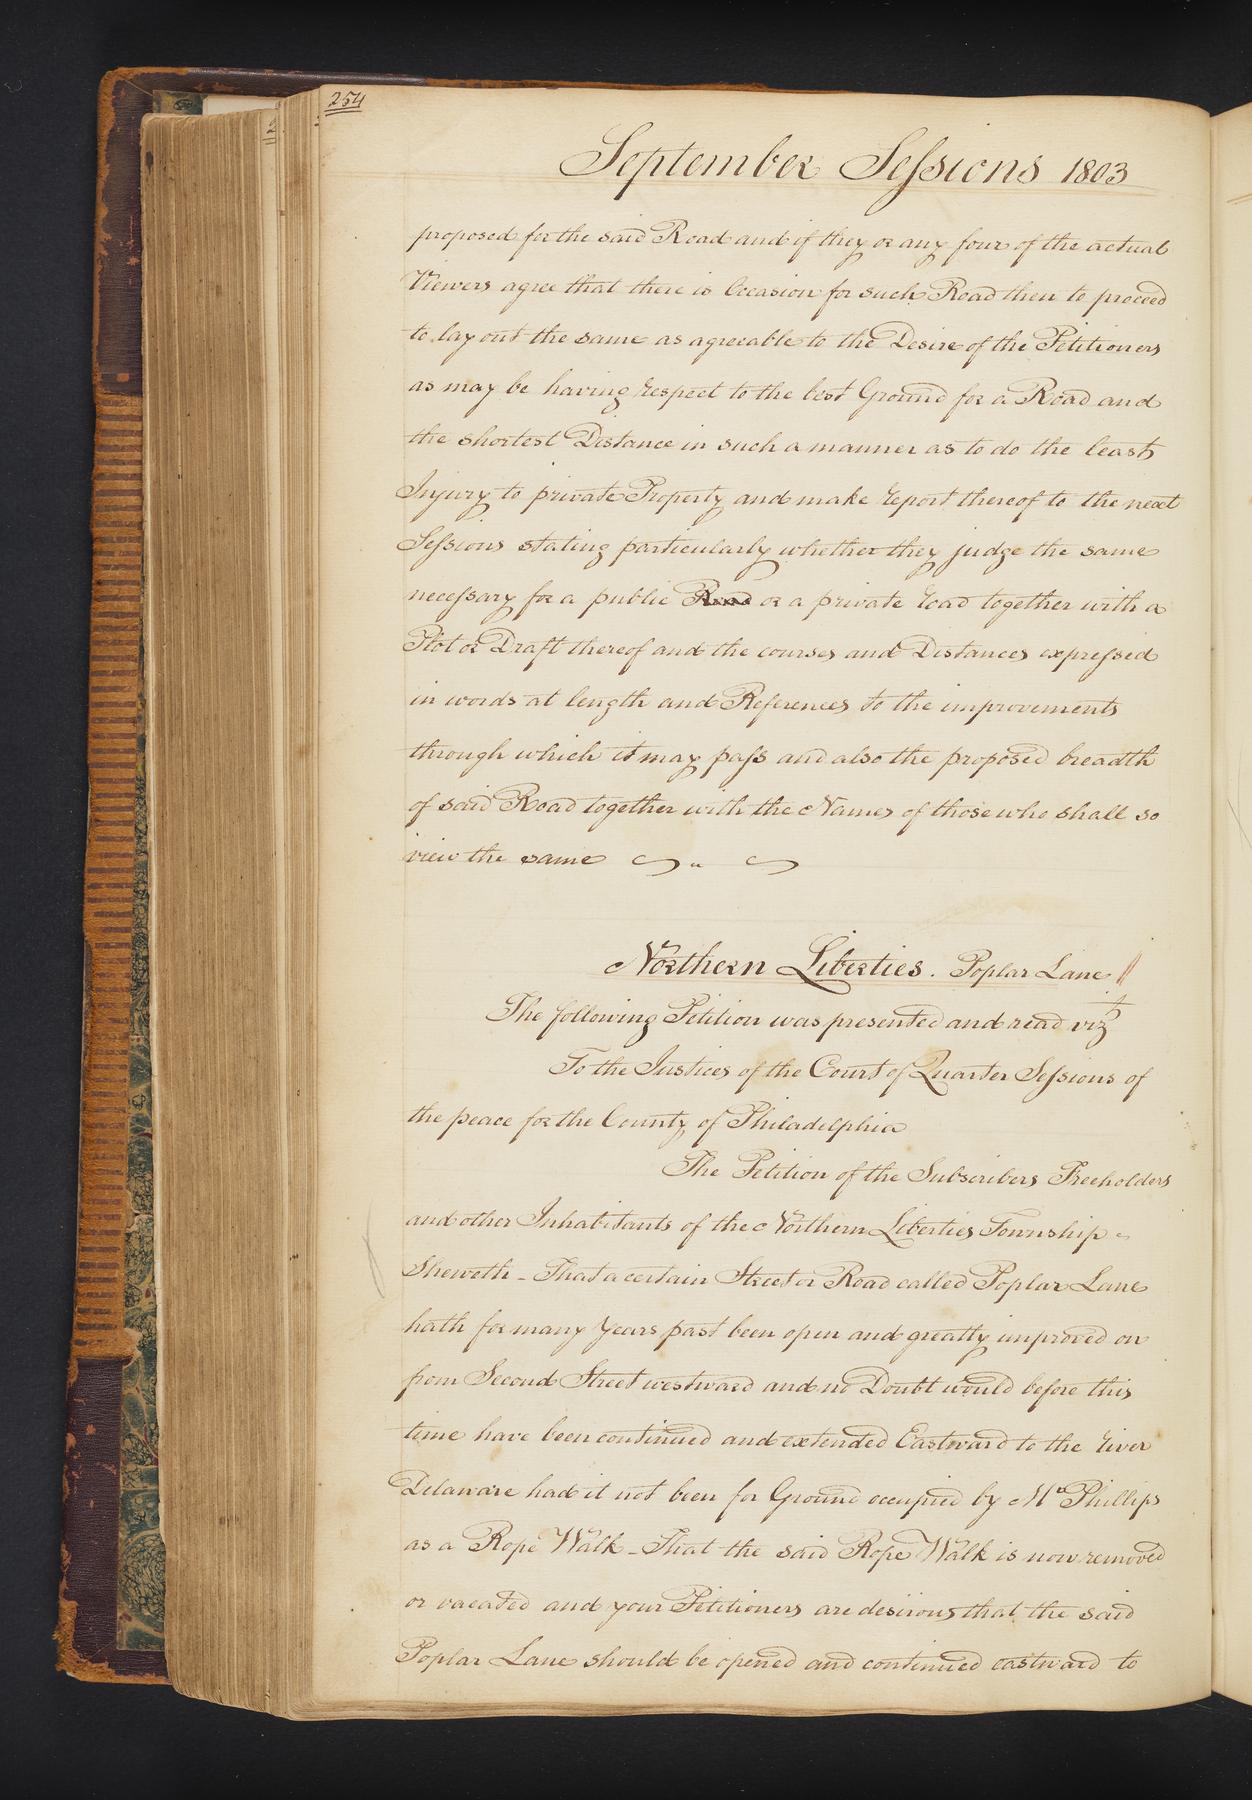 254
September Sessions 1803
proposed for the said Road and if they or any four of the actual
Viewers agree that there is Occasion for such Road then to proceed
to lay out the same as agreeable to the Desire of the Petitioners
as may be having respect to the best Ground for a Road and
the shortest Distance in such a manner as to do the least
Injury to private Property and make report thereof to the next
Sessions stating particularly whether they judge the same
necessary for a public Road or a private road together with a
Plot or Draft thereof and the courses and Distances expressed
in words at length and References to the improvements
through which it may pass and also the proposed breadth
of said Road together with the Names of those who shall so
view the same
Northern Liberties. Poplar Lane
The following Petition was presented and read viz
To the Justices of the Court of Quarter Sessions of
the peace for the County of Philadelphia
The Petition of the Subscribers Freeholders
and other Inhabitants of the Northern Liberties Township
Sheweth - That a certain Street or Road called Poplar Lane
hath for many Years past been open and greatly improved on
from Second Street westward and no Doubt would before this
time have been continued and extended Eastward to the river
Delaware had it not been for Ground occupied by Mr Phillips
as a Rope Walk - That the said Rope Walk is now removed
or vacated and your Petitioners are desirous that the said
Poplar Lane should be opened and continued eastward to